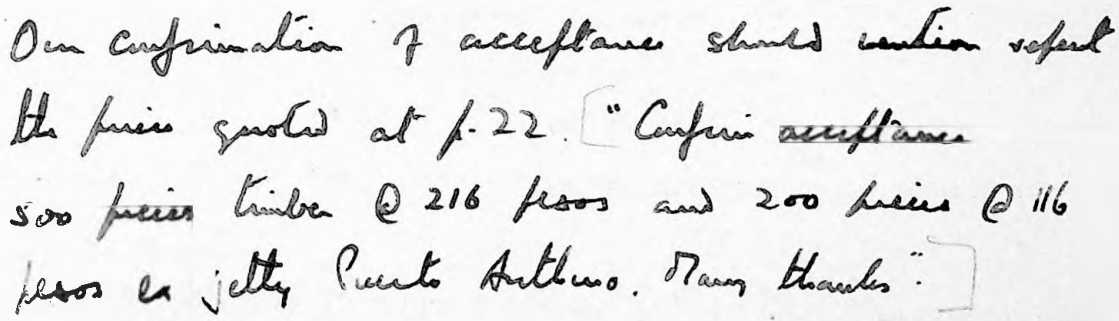 Our confirmation of acceptance should mention repeat
the prices quoted at p. 22. ["Confirm acceptance
500 pieces timber @ 216 pesos and 200 pieces @ 116
pesos ex jetty Puerto Many thanks".]